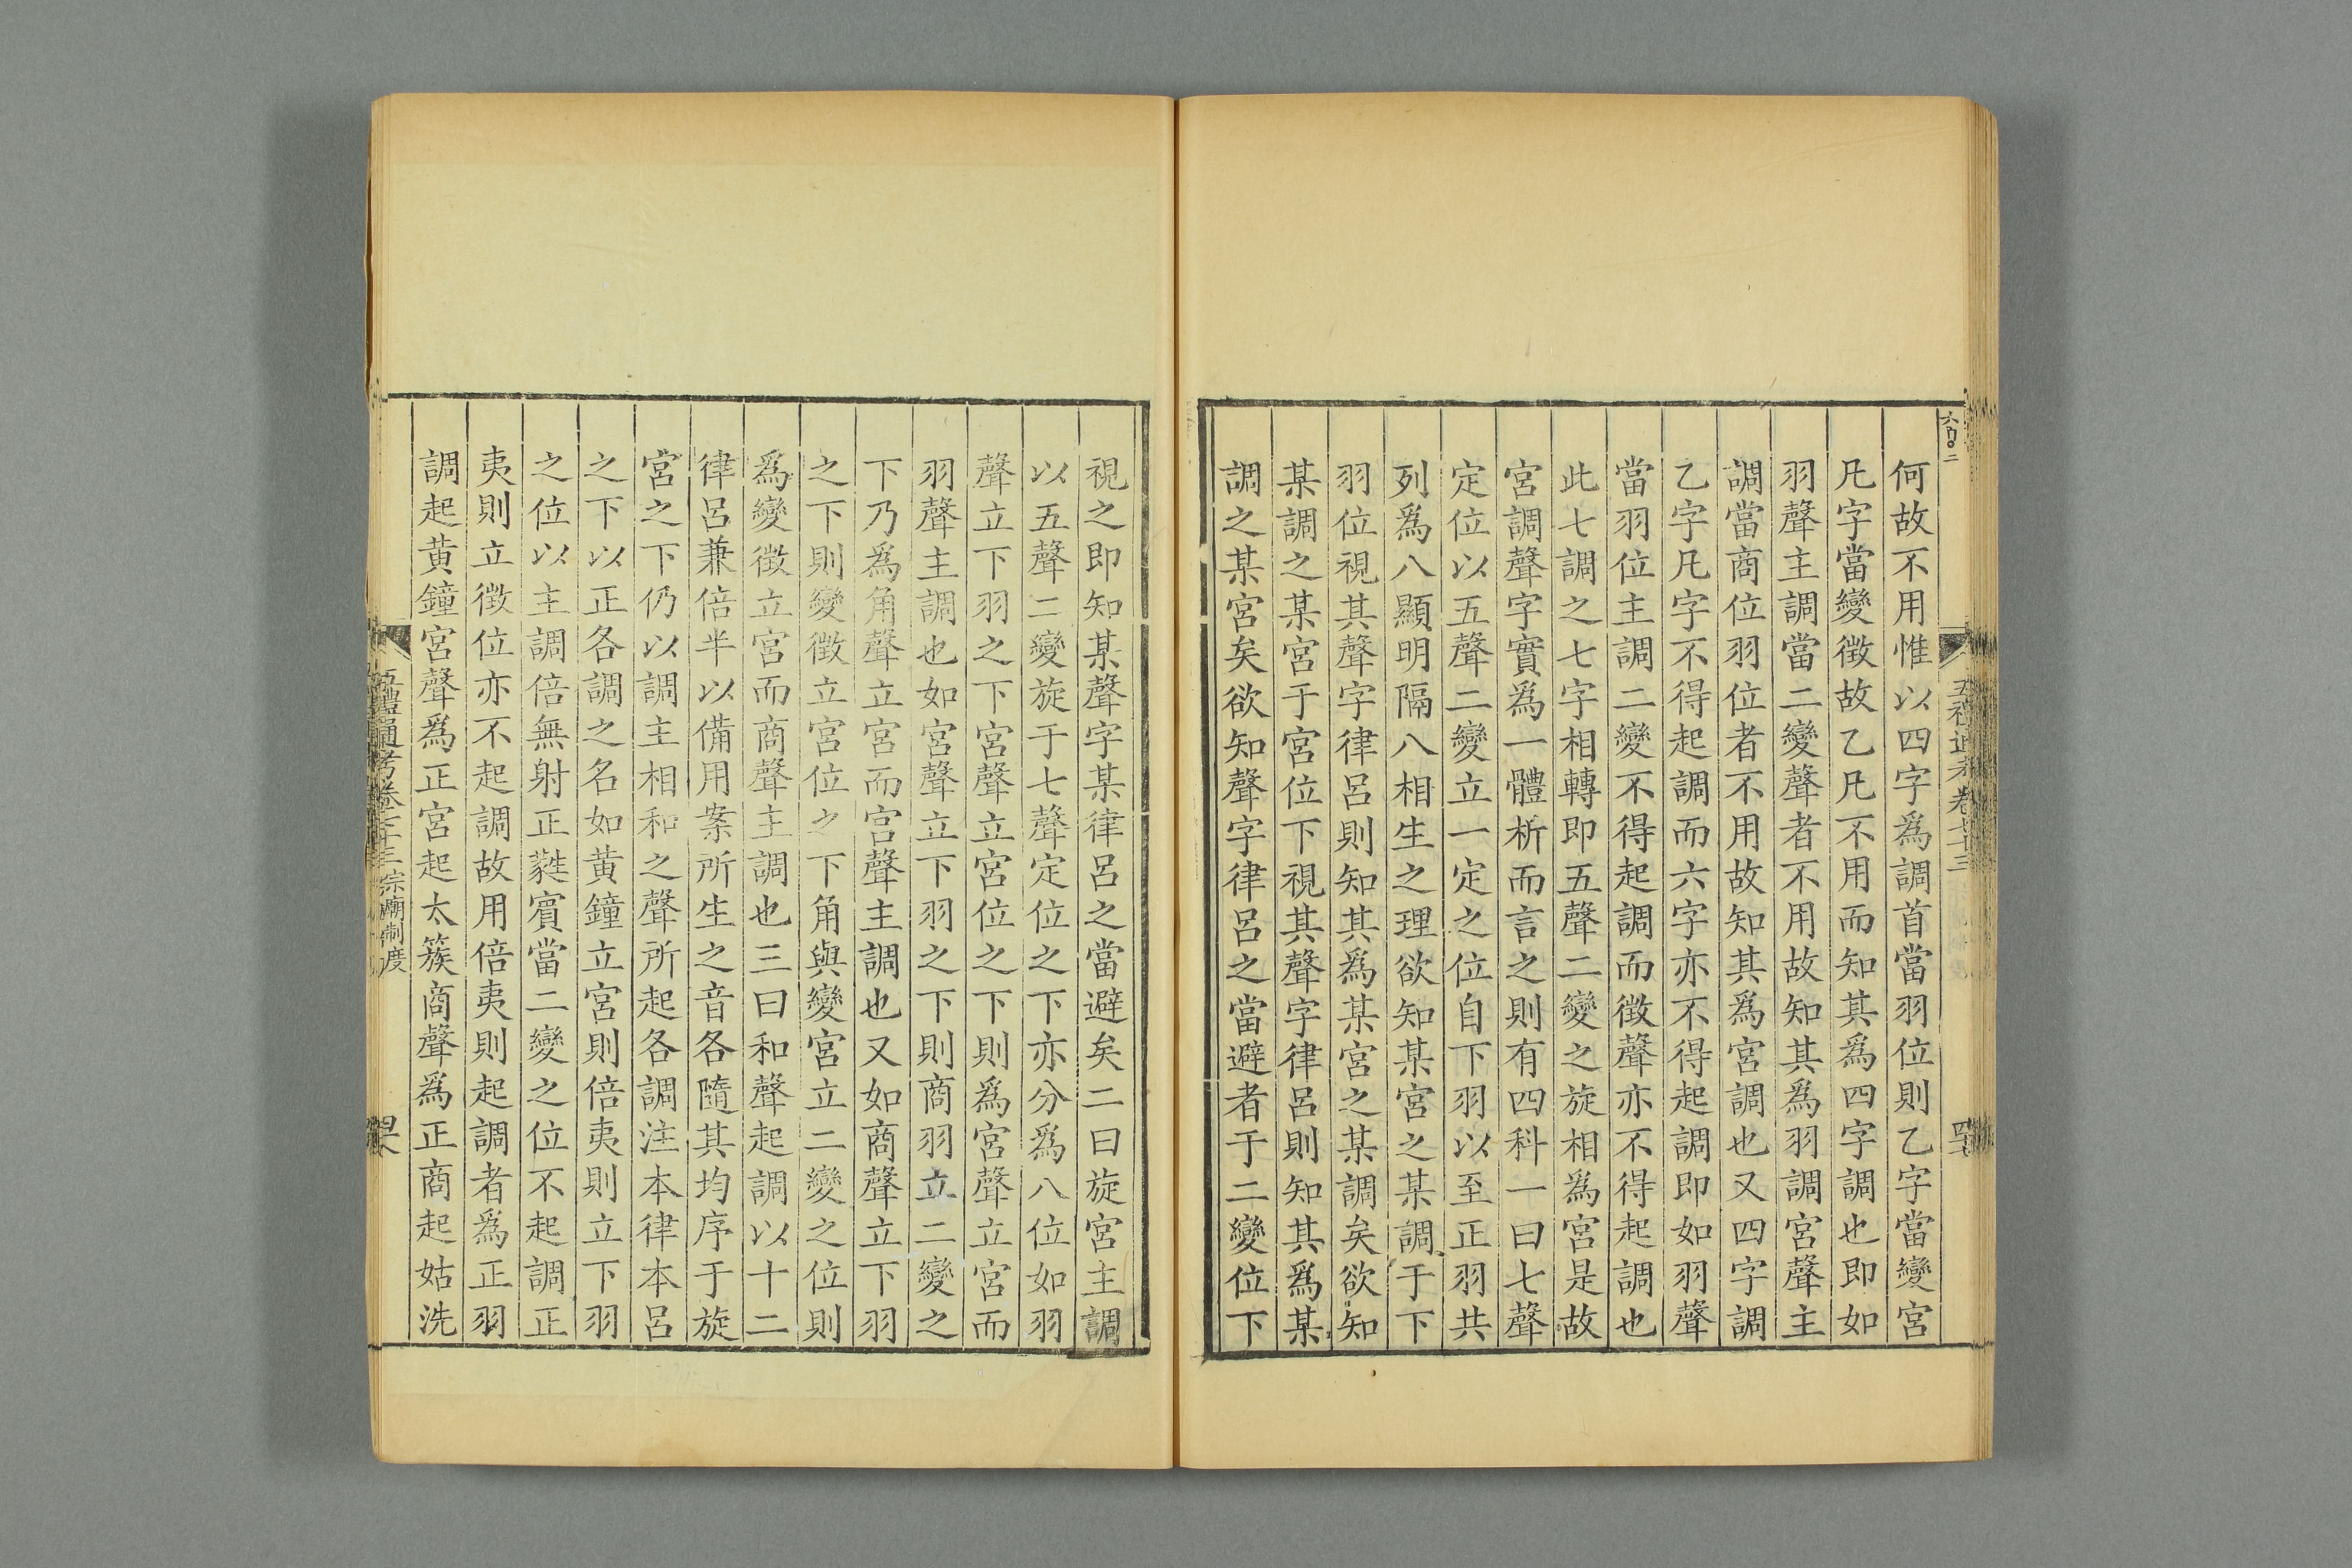 何故不用惟以四字爲調首當羽位則乙字當變宮
凡字當變徵故乙凡不用而知其爲四字調也即如
羽聲主調當二變聲者不用故知其爲羽調宮聲主
調當商位羽位者不用故知其爲宮調也又四字調
乙字凡字不得起調而六字亦不得起調即如羽聲
當羽位主調二變不得起調而徵聲亦不得起調也
此七調之七字相轉即五聲二變之旋相爲宮是故
宮調聲字實爲一體析而言之則有四科一曰七聲
定位以五聲二變立一定之位自下羽以至正羽共
列爲八顯明隔八相生之理欲知某宮之某調于下
羽位視其聲字律呂則知其爲某宮之某調矣欲知
某調之某宮于宮位下視其聲字律呂則知其爲某
調之某宮矣欲知聲字律呂之當避者于二變位下
視之即知某聲字某律呂之當避矣二曰旋宮主調
以五聲二變旋于七聲定位之下亦分爲八位如羽
聲立下羽之下宮聲立宮位之下則爲宮聲立宮而
羽聲主調也如宮聲立下羽之下則商羽立二變之
下乃爲角聲立宮而宮聲主調也又如商聲立下羽
之下則變徵立宮位之下角與變宮立二變之位則
爲變徵立宮而商聲主調也三曰和聲起調以十二
律呂兼倍半以備用案所生之音各隨其均序于旋
宮之下仍以調主相和之聲所起各調注本律本呂
之下以正各調之名如黃鐘立宮則倍夷則立下羽
之位以主調倍無射正蕤賓當二變之位不起調正
夷則立徵位亦不起調故用倍夷則起調者爲正羽
調起黃鐘宮聲爲正宮起太簇商聲爲正商起姑洗
五禮通考卷七十三 宗廟制度